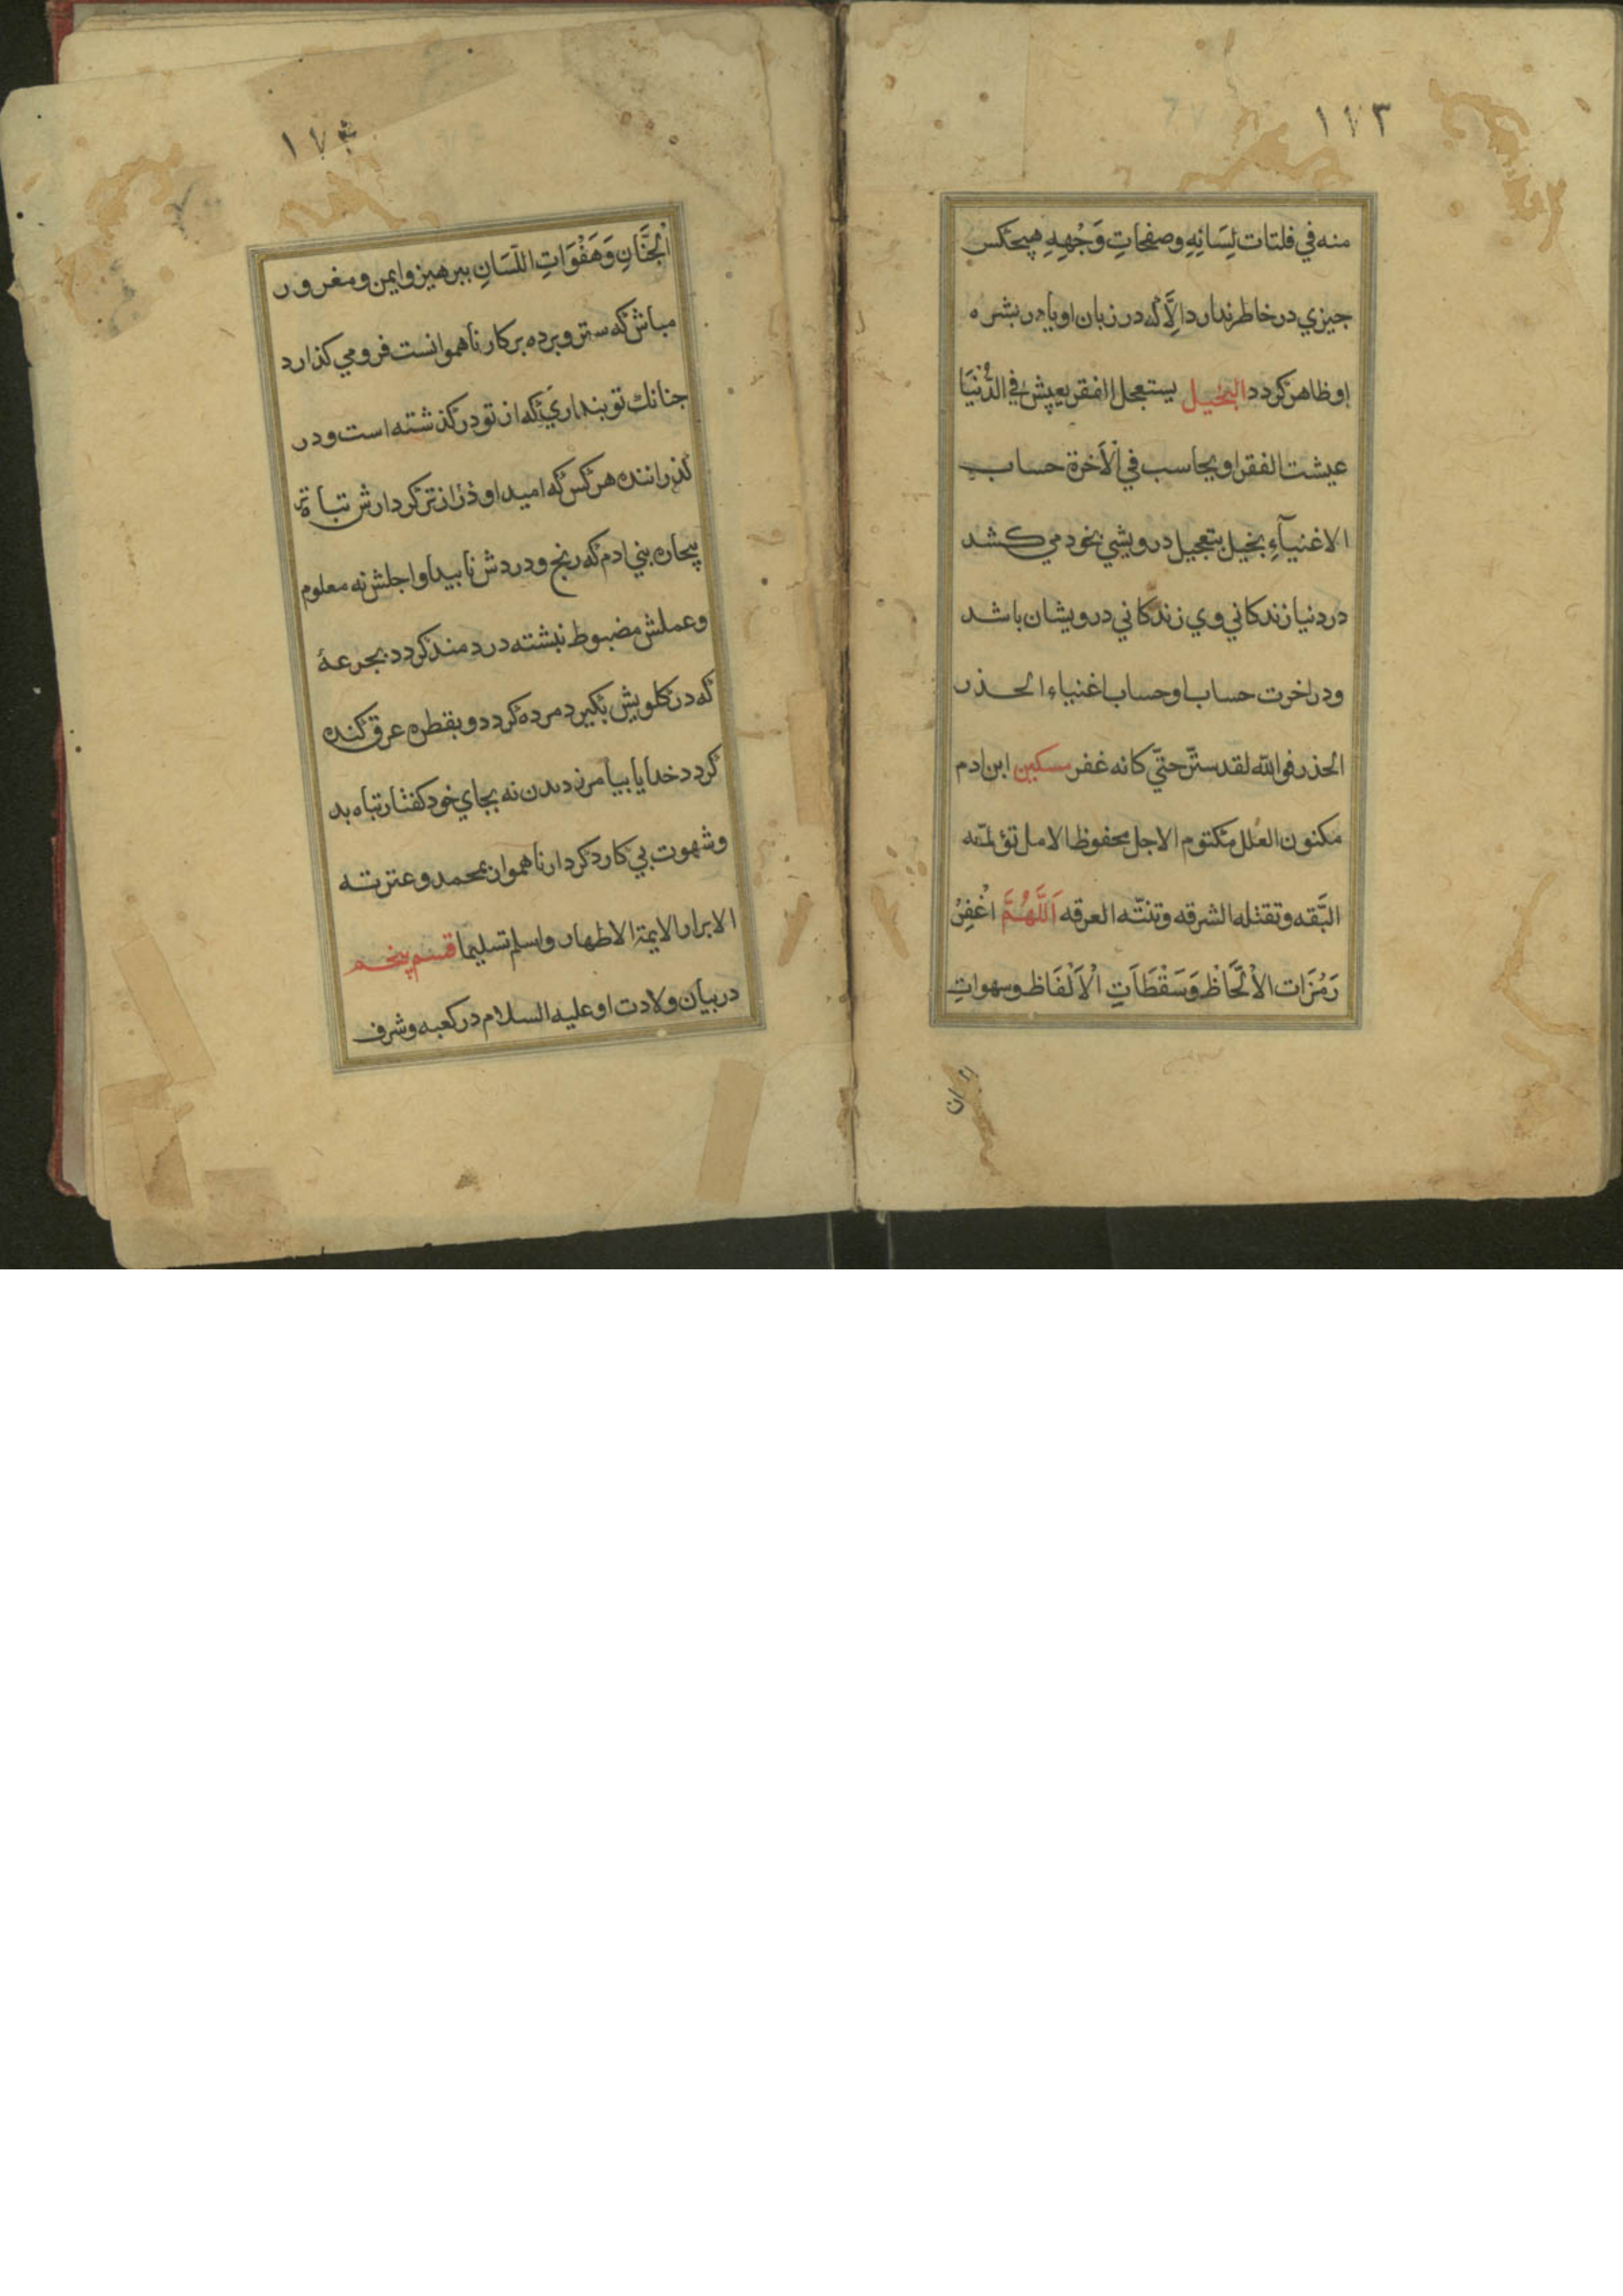 ١٧٣
منه في فلتات لِسَانِهِ وصفحاتِ وَجْهِهِ هيچكس
جيزي در خاطر ندارد اِلاَّ كه در زبان او يا در بشره
او ظاهر كردد البخيل يستعجل الفقر يعيش في الدُّنْيَا
عيشت الفقرا و يحاسب في الْاَخرة حساب
الاغنيآءِ بخيل بتعجيل درويشي بخود مي كشد
در دنيا زندكاني وي زندكاني درويشان باشد
ودر اخرت حساب او حساب اغنياء الحذر
الحذر فو الله لقد ستّر حتّي كانه غفر مسكين ابن ادم
مكنون العلل مكتوم الاجل محفوظ الامل تؤلمّه
البَّقه وتقتله الشرقه وتنتّه العرقه اَللَّهُمَّ اغْفِرْ
رَمَزَات الْاَلْحَاظِ وَسَقْطَاتِ الْاَلْفَاظ وسهواتِ
١٧۴
الْجَنَانِ وَهَفْوَاتِ اللّسَانِ ببرهيز و ايمن و مغرور
مباش كه ستر و برده بر كار ناهموانست فرو مي كذارد
جنانك تو بنداري كه از تو در كذشته است و در
كذرانند هر كس كه اميد او دراز تر كردارش تباه تر
بيچاره بني ادم كه رنج و دردش نابيدا و اجلش نه معلوم
وعملش مضبوط نبشته دردمند كردد بجرعهٔ
كه در كلويش بكيرد مرده كردد و بقطره عرق كنده
كردد خدايا بيامرز ديدن نه بجاي خود كفتار تباه بد
وشهوت بي كار دكردار ناهموان بمحمد وعترته
الابرار الايمة الاطهار واسلم تسليما قسم پنجم
در بيان ولادت او عليه السلام در كعبه وشرف